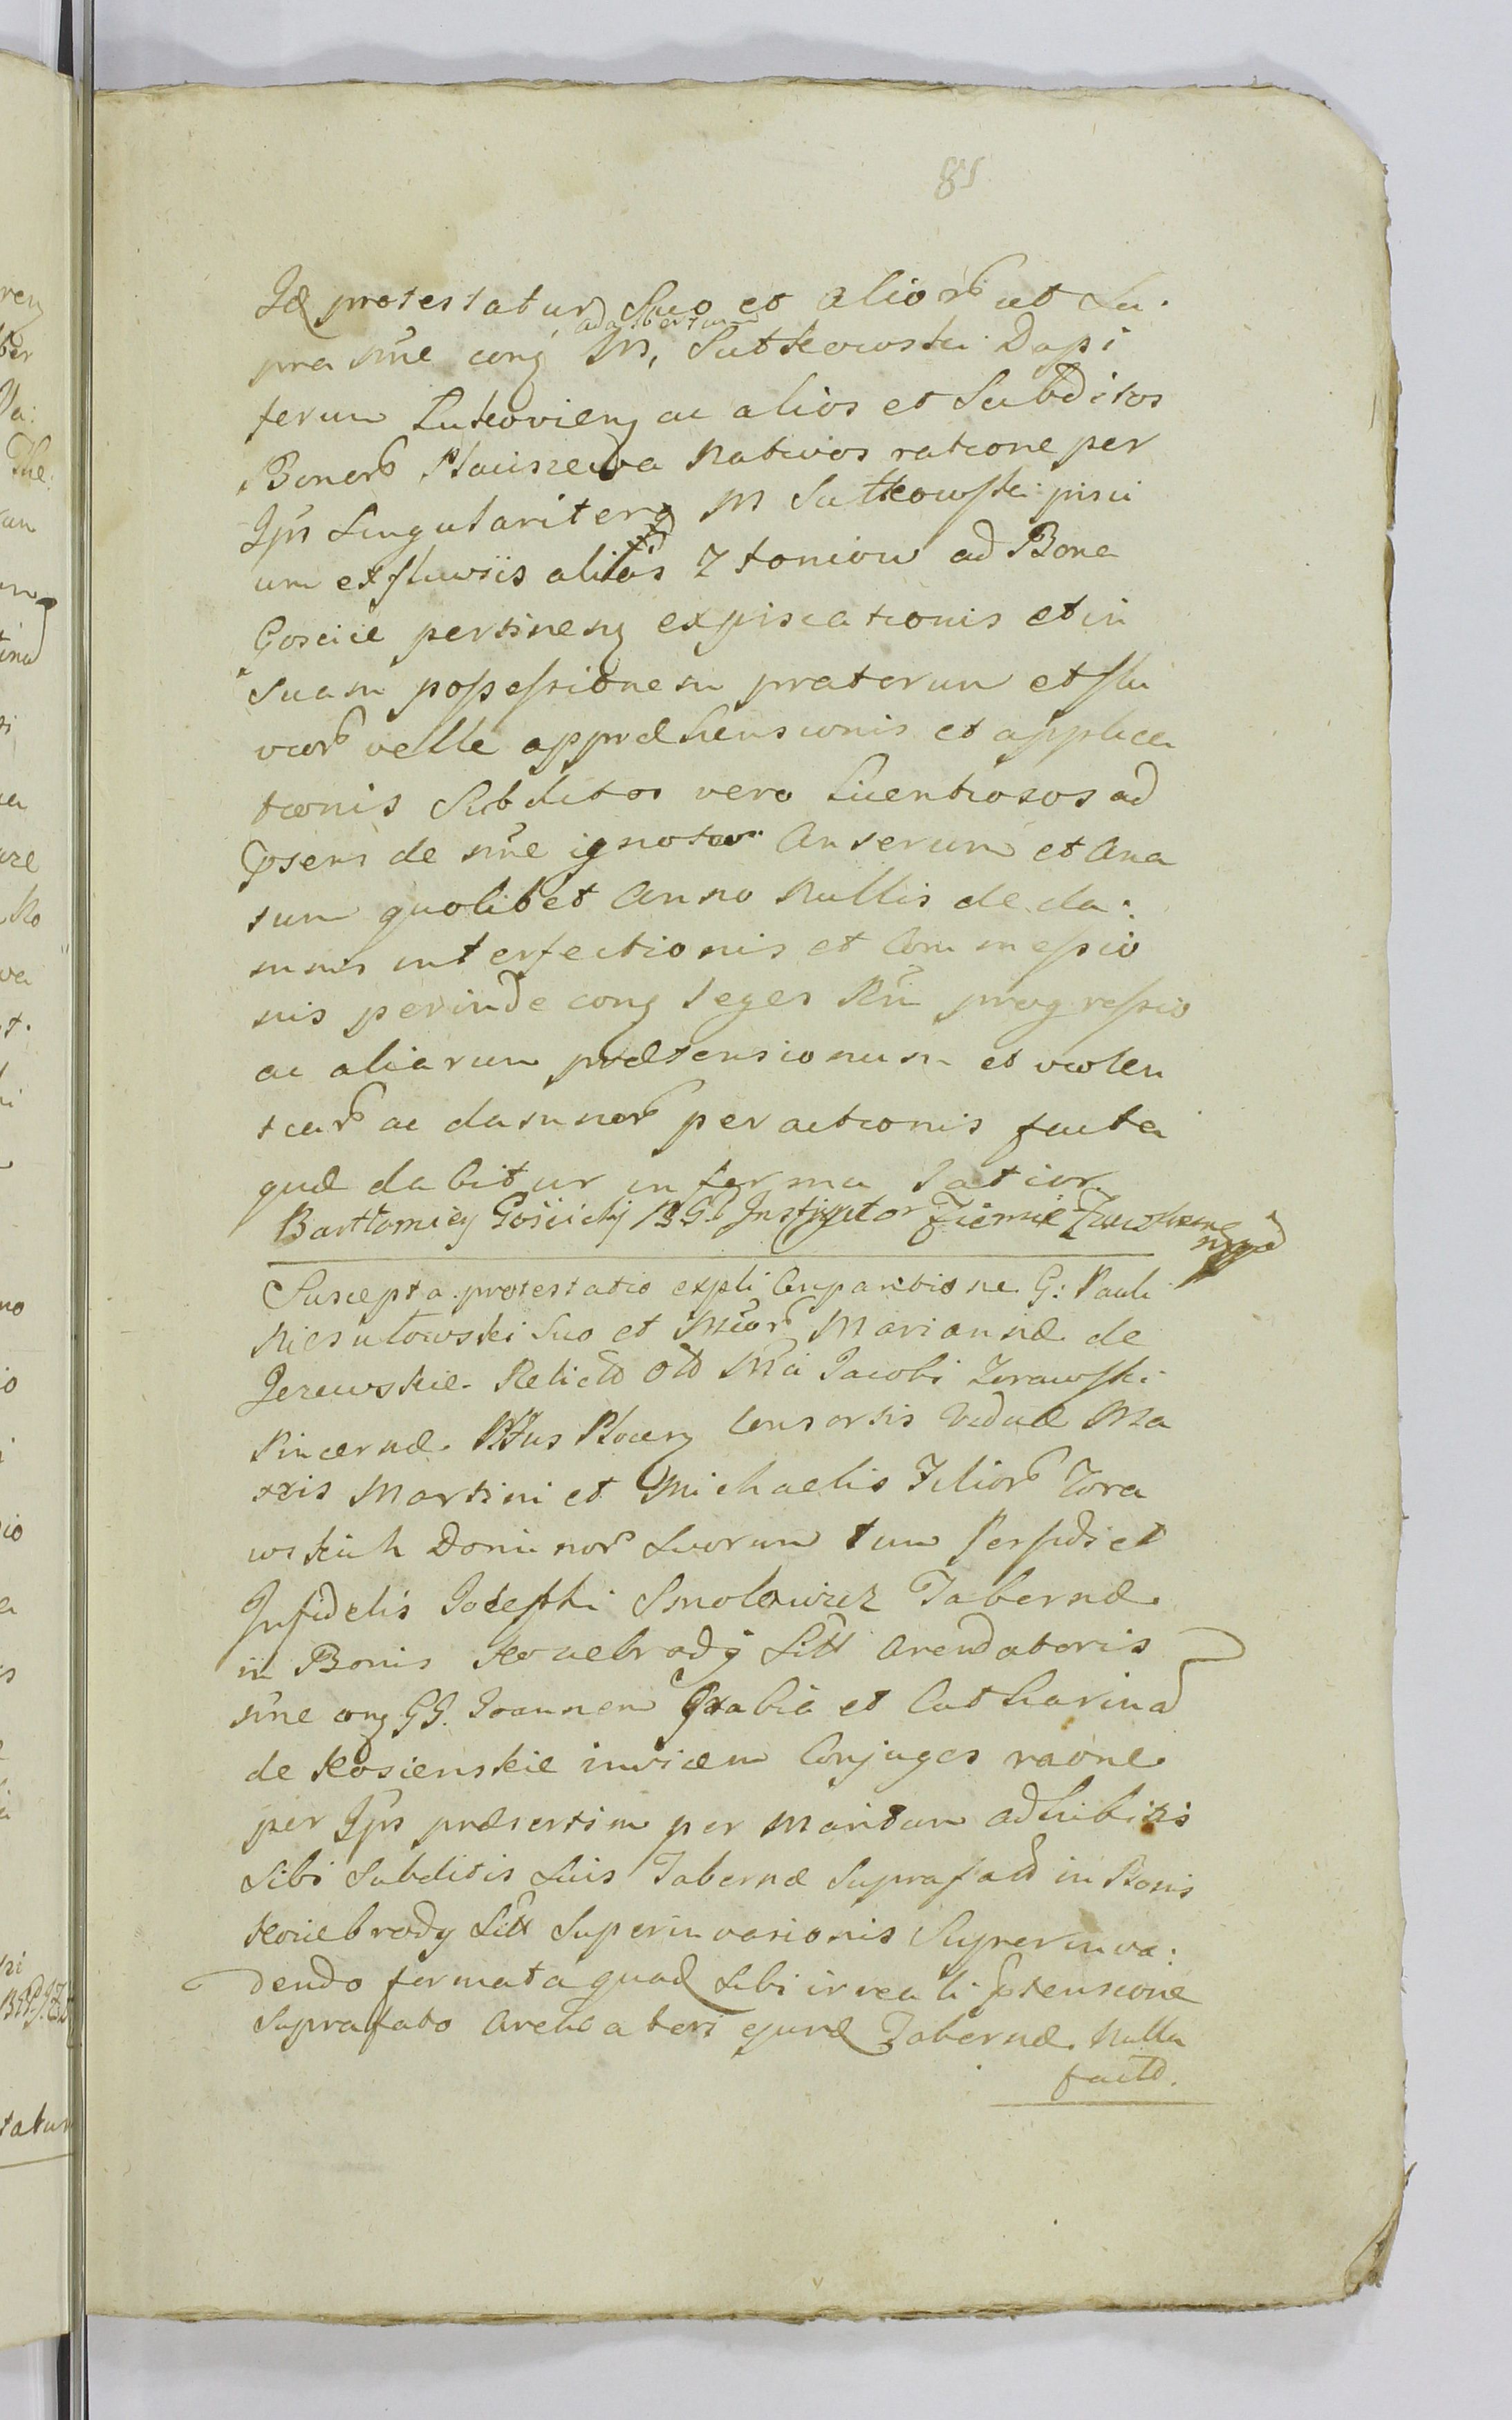 85
Id protestatur Suo et alior ut Su
adalbertum
pra sme cong M, Sutkowski Dapi
ferum Lukovien ac alios et Subditos
Bonor Nativos ratione per
Ips Singulariter M Sutkowski pisci
um ex fluviis alias Z toniow ad Bona
Goscice pertinen expiscationis et in
suam possessionem pratorum et flu
vior velle appræhensionis et applica
tionis Subditos vero Licentiosos ad
Psens de nne ignotos Anserum et Ana
tum quolibet Anno Nullis de da:
mnis interfectionis et Commessio
nis perinde cong leges Rni progressio
ac aliarum prætensionum et violen
tiar ac damnor peractionis facta
quæ dabitur in forma latior
Bartłomiey Gościcky BGS Instigator Ziemie Zawskrzen
mppa
Suscepta protestatio expli Comparitione G: Pauli
Niesułowski Suo et Mcor Mariannæ de
Jezewskie Relictæ old Mci Jacobi Zorawski
Pincernæ Ptus Plocen Consortis Viduæ Ma
tris Martini et Michaelis Filior Zora
wskich Dominor Suorum tum Perfidi et
Infidelis Josephi Smolowicz Tabernæ
in Bonis Koziebrody Sitt Arendatoris
sme cong GG. Joannem Grabia et Catharina
de Kosienskie invicem Conjuges raone
per Ips præsertim per Maritum adhibitis
Sibi Subditis Suis Tabernæ Suprafatæ in Bonis
Koziebrody Sitt Superinvasionis Superinva:
dendo formata quad Sibi irreali Ptensione
Suprafato Arendatori ejusd Tabernæ Nulla
facta.